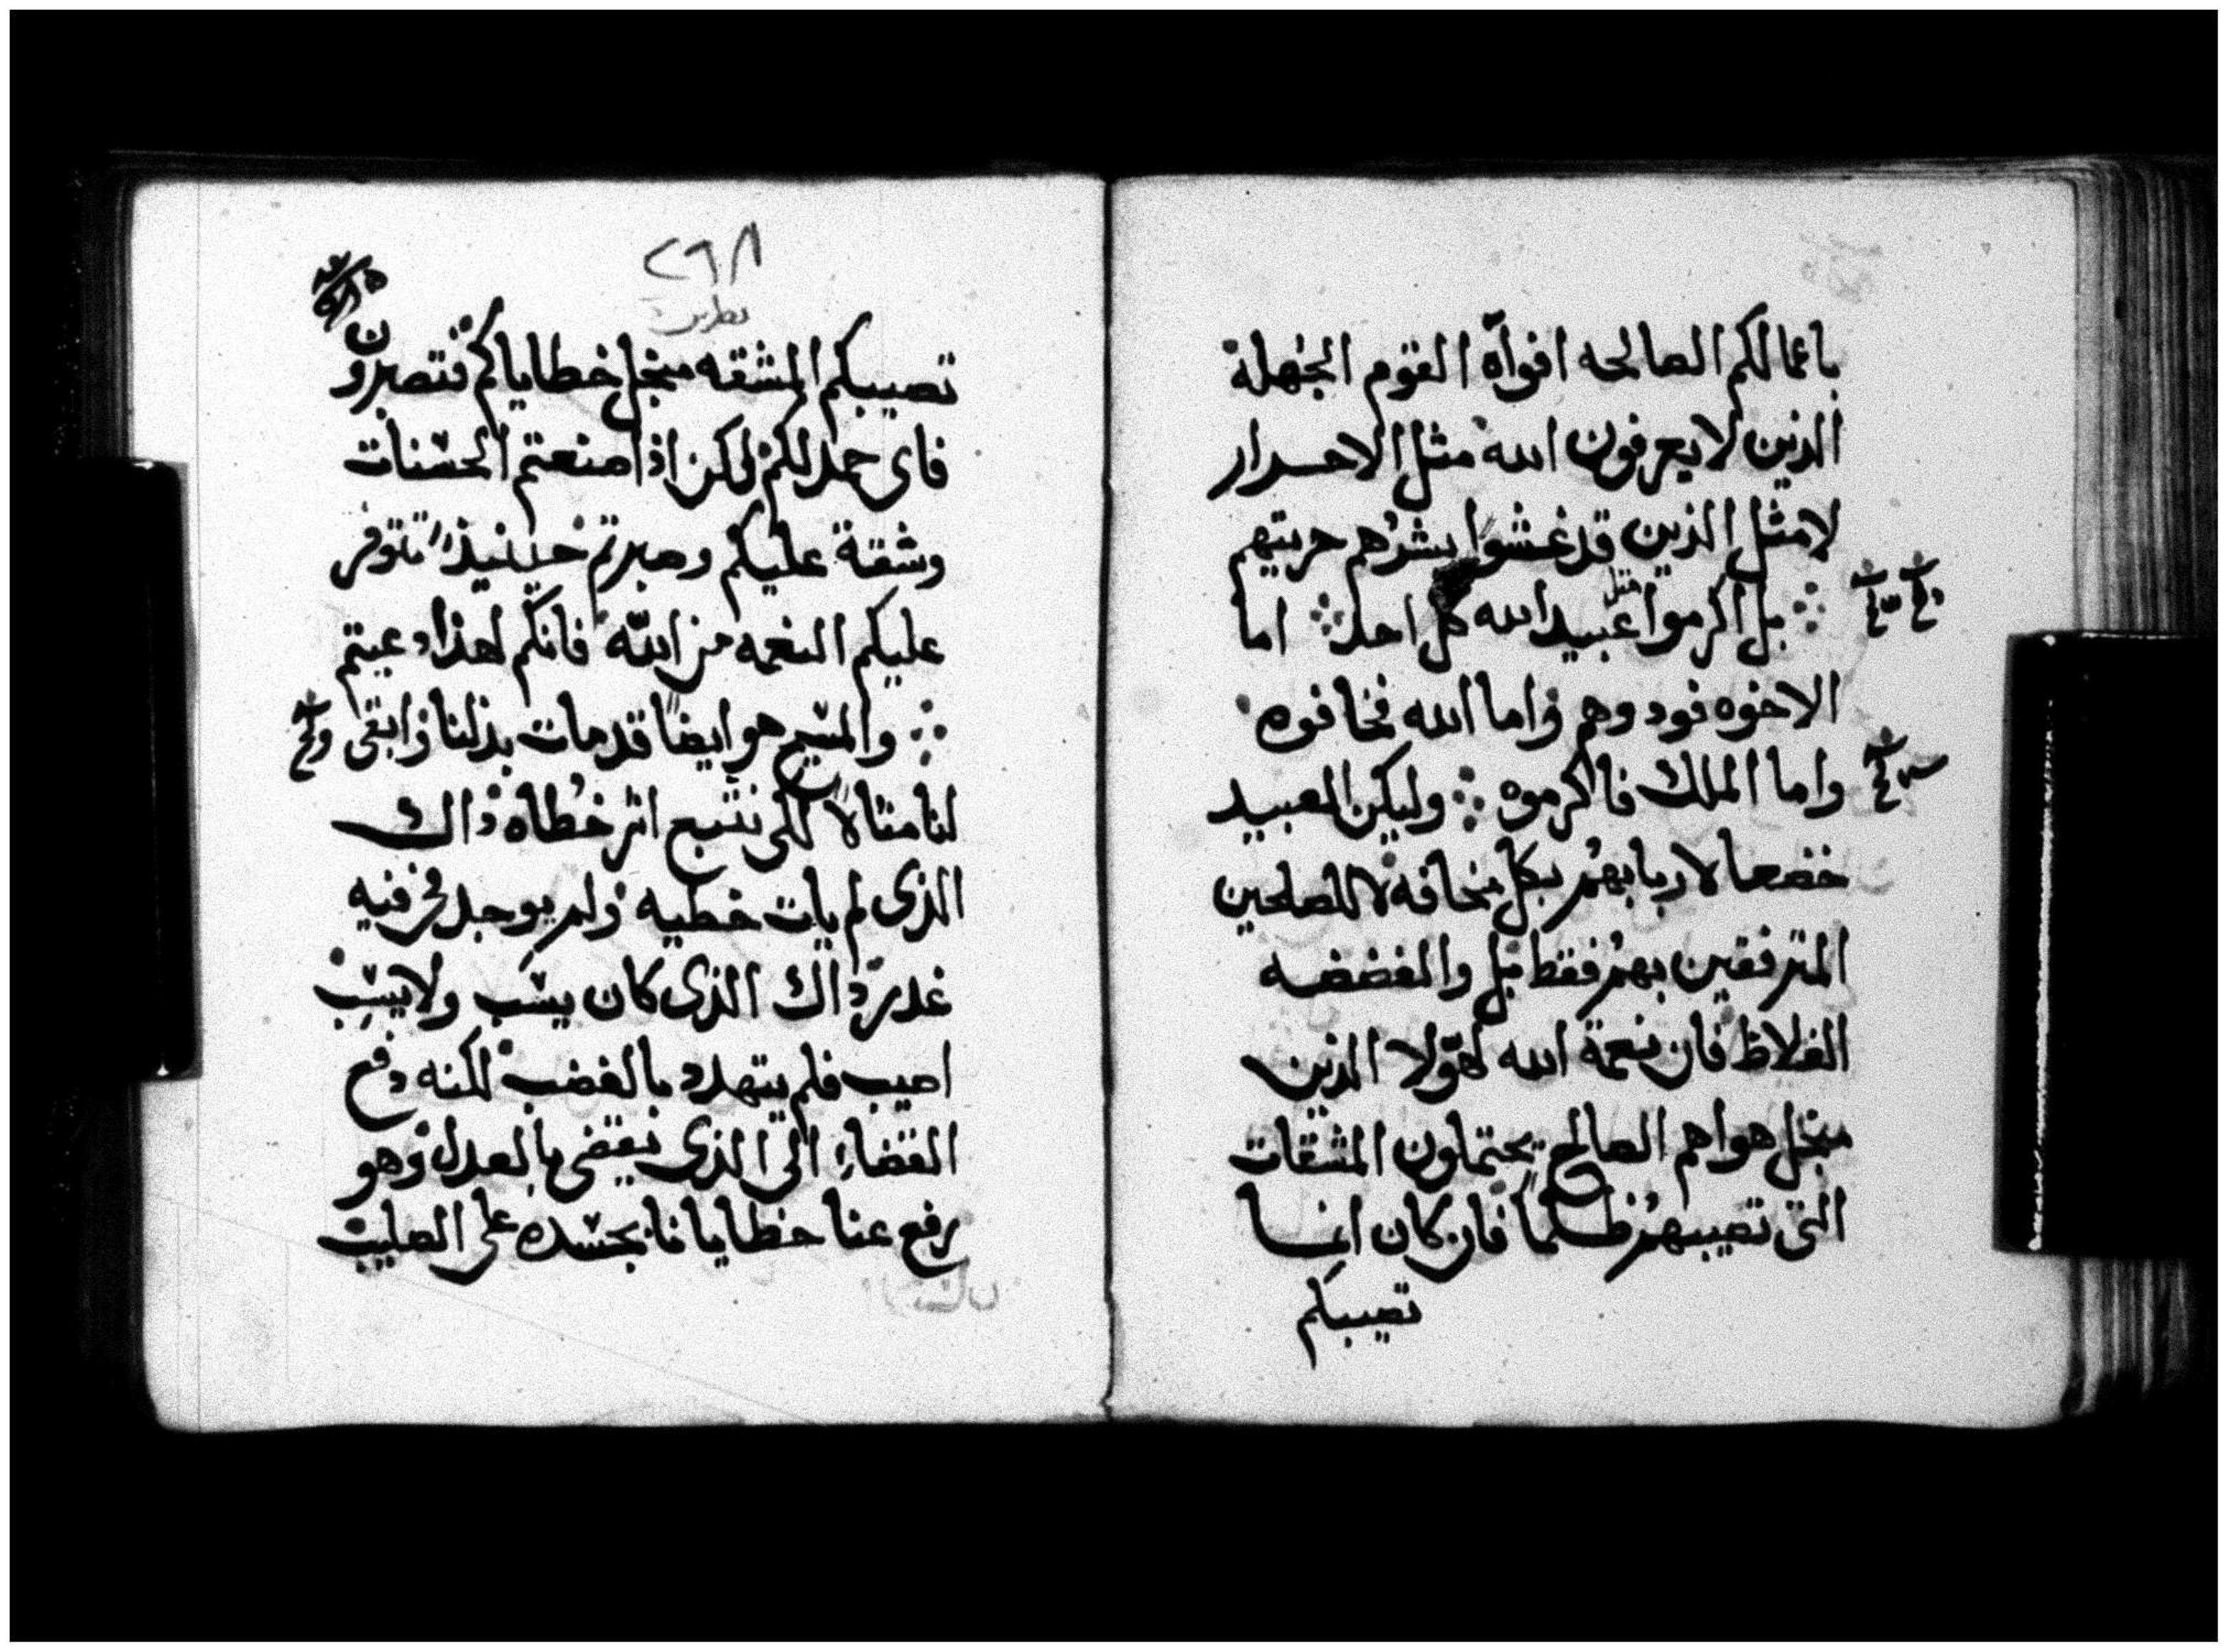 باعمالكم الصالحه افواه القوم الجهلة
الذين لا يعرفون الله مثل الاحرار
لا مثل الذين قد غشوا بشرهم حريتهم
بل اكرموا مثل عبيد الله كل احد اما
الاخوه فودوهم واما الله فخافوه
واما الملك فاكرموه وليكن العبيد
خضعا لاربابهم بكل مخافه لا للصالحين
المترفقين بهم فقط بل والفضضه
الغلاظ فان نعمة الله لهولا الذين
منجل هواهم الصالح يحتملون المشقات
التى تصيبهم ظلما فان كان انما
تصيبكم
٢٦٨
تصيبكم المشقه منجل خطاياكم فتصبرون
فاى حمد لكم لكن اذا صنعتم الحسنات
وشقة عليكم وصبرتم حينيذ تتوفر
عليكم النعمه من الله فانكم لهذا دعيتم
والمسيح هو ايضا قد مات بدلنا وابقى
لنا مثالا لكى نتبع اثر خطاه ذاك
الذى لم يات خطيه ولم يوجد فى فيه
غدر ذاك الذى كان يسب ولا يسب
اصيب فلم يتهدد بالغضب لكنه دفع
القضاء الى الذى يقضى بالعدل وهو
رفع عنا خطايانا بجسده على الصليب